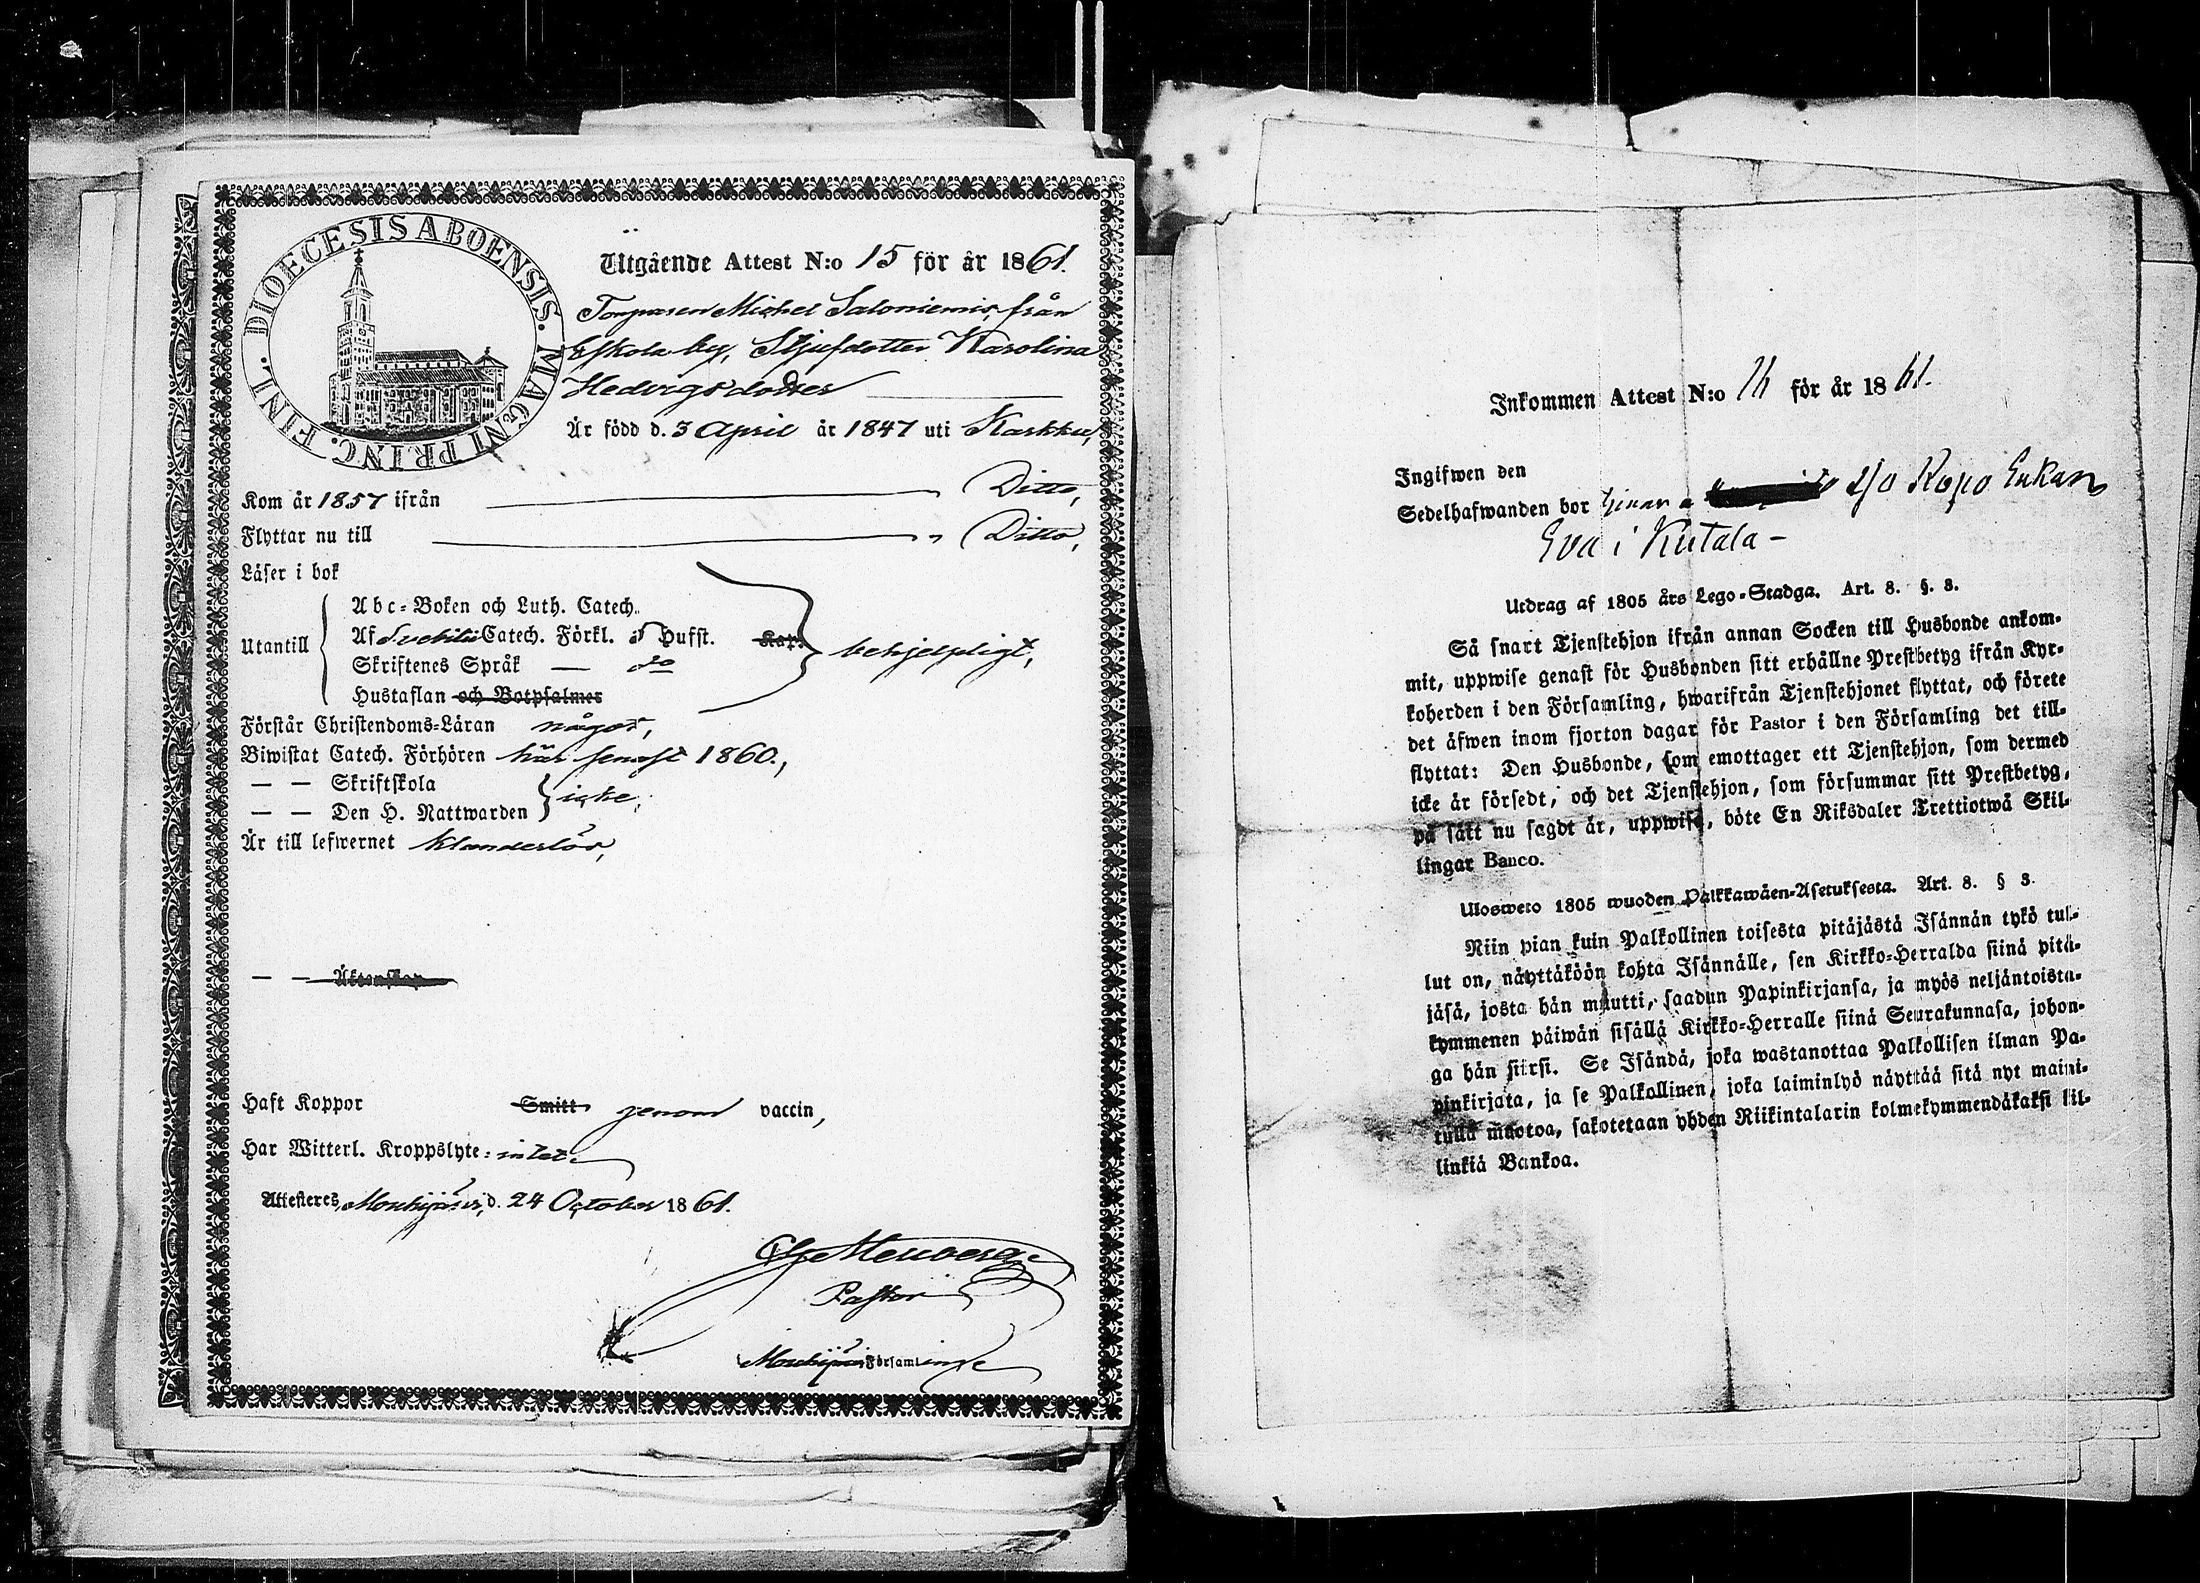 DIOECESIS ABOENSIS. MAGNI PRINC. FINL.
Utgående Attest N:o 15 för år 1861.
Torparen Michel Saloniemis, från
Eskola by, Styfdotter Karolina
Hedvigsdotter
Är född d. 3 April år 1847 uti Karkku,
Kom år 1857 ifrån Ditto,
Flyttar nu till Ditto,
Läser i bok
Utantill
Abc-Boken och Luth. Catech.
Af Svebilii Catech. Förkl. 5 Hufst. Kap.
Skriftenes Språk — do
Hustaflan och Botpsalmer
behjelpligt,
Förstår Christendoms-Läran något,
Biwistat Catech. Förhören här senast 1860.,
— — Skriftskola
— — Den H. Nattwarden
icke,
Är till lefwernet klanderlös,
— — Äktenskap
Haft Koppor Smitt genom vaccin,
Har Witterl. Kroppslyte: intet.
Attesteres, Mouhijärvi, d. 24 October 1861.
Pastor
Mouhijärvi Församlings
Inkommen Attest N:o 16 för år 1861.
Ingifwen den
Sedelhafwanden bor hos Ropo Enkan
Eva i Kutala –
Utdrag af 1805 års Lego-Stadga. Art. 8. §. 3.
Så snart Tjenstehjon ifrån annan Socken till Husbonde ankom-
mit, uppwise genast för Husbonden sitt erhållne Prestbetyg ifrån Kyr-
koherden i den Församling, hwarifrån Tjenstehjonet flyttat, och förete
det äfwen inom fjorton dagar för Pastor i den Församling det till-
flyttat: Den Husbonde, som emottager ett Tjenstehjon, som dermed
icke är försedt, och det Tjenstehjon, som försummar sitt Prestbetyg,
på sätt nu sagdt är, uppwisa, böte En Riksdaler Trettiotwå Skil-
lingar Banco.
Ulosweto 1805 wuoden Palkkawäen-Asetuksesta. Art. 8. § 3.
Niin pian kuin Palkollinen toisesta pitäjästä Isännän tykö tul-
lut on, näyttäköön kohta Isännälle, sen Kirkko-Herralda siinä pitä-
jäsä, josta hän muutti, saadun Papinkirjansa, ja myös neljäntoista-
kymmenen päiwän sisällä Kirkko-Herralle siinä Seurakunnasa, johon-
ga hän siirsi. Se Isändä, joka wastanottaa Palkollisen ilman Pa-
pinkirjata, ja se Palkollinen, joka laiminlyö näyttää sitä nyt maini-
tulla muotoa, sakotetaan yhden Riikintalarin kolmekymmendäkaksi kil-
linkiä Bankoa.